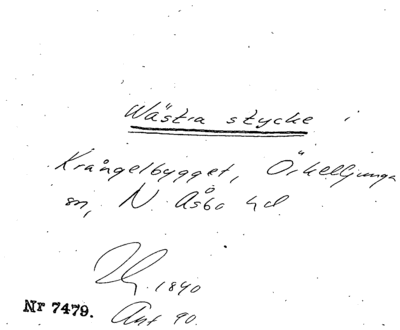 Wästra stycke i
Krångelbygget, Örkelljunga
sn, N. Åsbo hd.
1840
Nr 7479. Ant 90.